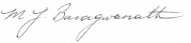 M J Baragwanath